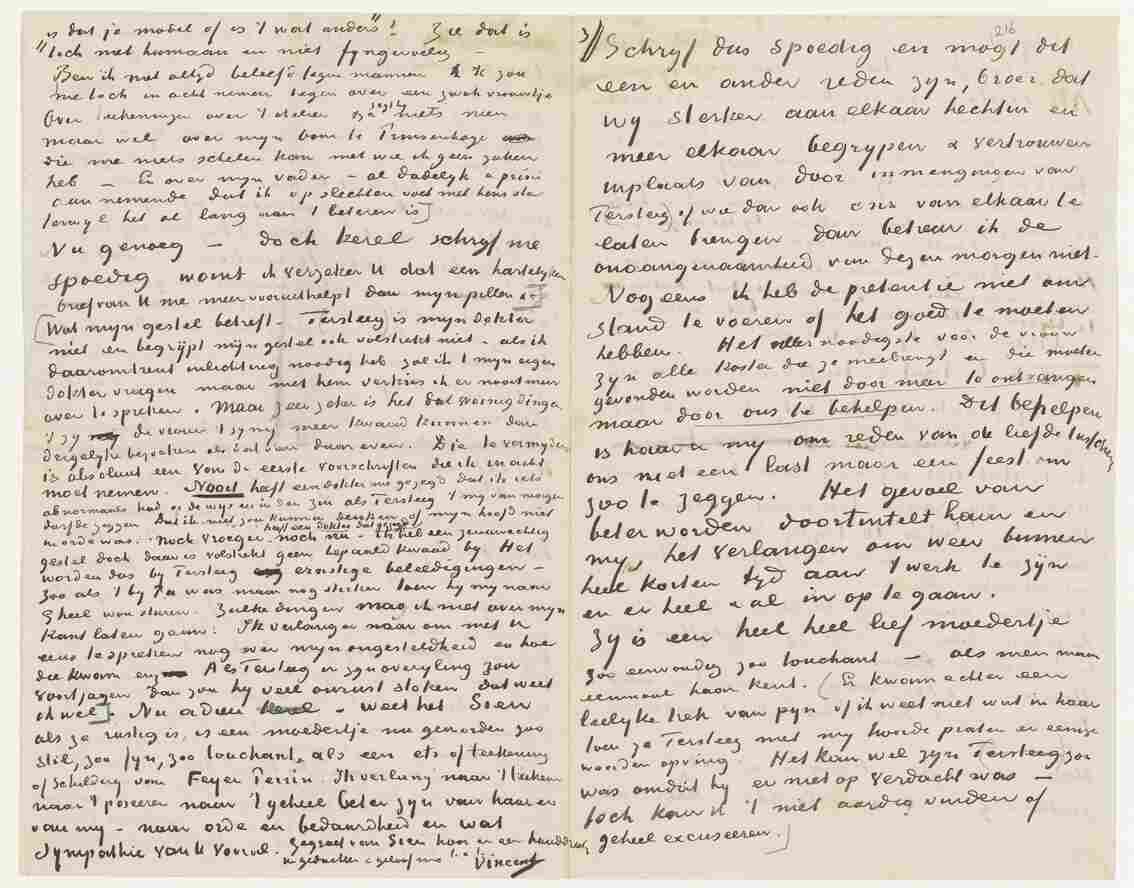 is dat je model of is 't wat anders"! Zie dat is
"toch niet humaan en niet fyngevoelig –
Ben ik niet altyd beleefd tegen mannen ik zou
me toch in acht nemen tegen over een zwak vrouwtje
Over teekeningen over 't atelier zegt hy niets neen
maar wel over myn oom te Prinsenhage
die me niets schelen kan met wie ik geen zaken
heb – En over myn vader – al dadelyk a priori
aannemende dat ik op slechten voet met hem sta
terwyl het al lang aan 't beteren is]
Nu genoeg – doch kerel schryf me
spoedig want ik verzeker U dat een hartelyken
brief van U me meer vooruithelpt dan myn pillen
[Wat myn gestel betreft – Tersteeg is myn dokter
niet en begrypt myn gestel ook volstrekt niet – als ik
daaromtrent inlichting noodig heb zal ik 't myn eigen
dokter vragen maar met hem verkies ik er nooit meer
over te spreken. Maar zeer zeker is het dat weinig dingen
't zy de vrouw 't zy my meer kwaad kunnen dan
dergelyke bezoeken als dat van daar even. Die te vermyden
is absoluut een van de eerste voorschriften die ik in acht
moet nemen. Nooit heeft een dokter me gezegd dat ik iets
abnormaals had op de wys en in den zin als Tersteeg 't my van morgen
dorst te zeggen. Dat ik niet zou kunnen denken of myn hoofd niet
in orde was. heeft een dokter dat gezegd
noch vroeger noch nu – ik heb een zenuwachtig
gestel doch daar is volstrekt geen bepaald kwaad by. Het
worden dus by Tersteeg ernstige beleedigingen –
zoo als 't by Pa was maar nog sterker toen hy my naar
Gheel wou sturen. Zulke dingen mag ik niet over myn
kant laten gaan. Ik verlang er naar om met U
eens te spreken nog over myn ongesteldheid en hoe
die kwam enz – Als Tersteeg in zyn overyling zou
voortjagen dan zou hy veel onrust stoken dat weet
ik wel]. Nu adieu kerel – weet het Sien
als ze rustig is, is een moedertje nu geworden zoo
stil, zoo fyn, zoo touchant, als een ets of teekening
of schildery van Feyen Perrin. Ik verlang naar 't teekenen
naar 't poseeren naar 't geheel beter zyn van haar en
van my – naar orde en bedaardheid en wat
Sympathie van U vooral. Gegroet van Sien hoor en een handdruk
in gedachten & geloof me t. à t.
Vincent
216
3// Schryf dus spoedig en mogt dit
een en ander reden zyn, broer, dat
wy sterker aan elkaar hechten en
meer elkaar begrypen & vertrouwen
inplaats van door inmengingen van
Tersteeg) of wie dan ook ons van elkaar te
laten brengen dan betreur ik de
onaangenaamheid van dezen morgen niet.
Nog eens ik heb de pretentie niet om
stand te voeren of het goed te moeten
hebben. Het aller noodigste voor de vrouw
zyn alle kosten die ze meebrengt en die moeten
gevonden worden niet door meer te ontvangen
maar door ons te behelpen. Dit behelpen
is haar & my om reden van de liefde tusschen
ons niet een last maar een feest om
zoo te zeggen. Het gevoel van
beter worden doortintelt haar en
my, het verlangen om weer binnen
heel korten tyd aan 't werk te zyn
en er heel & al in op te gaan.
Zy is een heel heel lief moedertje
zoo eenvoudig zoo touchant – als men maar
eenmaal haar kent. (Er kwam echter een
leelyke trek van pyn of ik weet niet wat in haar
toen ze Tersteeg met my hoorde praten en eenige
woorden opving. Het kan wel zyn Tersteeg zoo
was omdat hy er niet op verdacht was –
toch kan ik 't niet aardig vinden of
geheel excuseeren.]